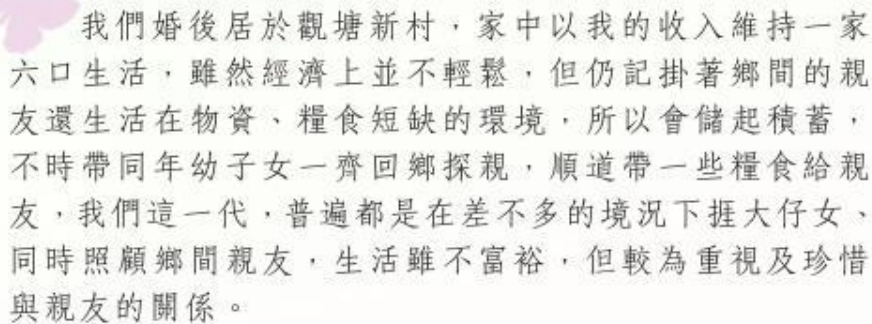 我們婚後居於觀塘新村，家中以我的收入維持一家
六口生活，雖然經濟上並不輕鬆，但仍記掛著鄉間的親
友還生活在物資、糧食短缺的環境，所以會儲起積蓄，
不時帶同年幼子女一齊回鄉探親，順道帶一些糧食給親
友，我們這一代，普遍都是在差不多的境況下捱大仔女、
同時照顧鄉間親友，生活雖不富裕，但較為重視及珍惜
與親友的關係。